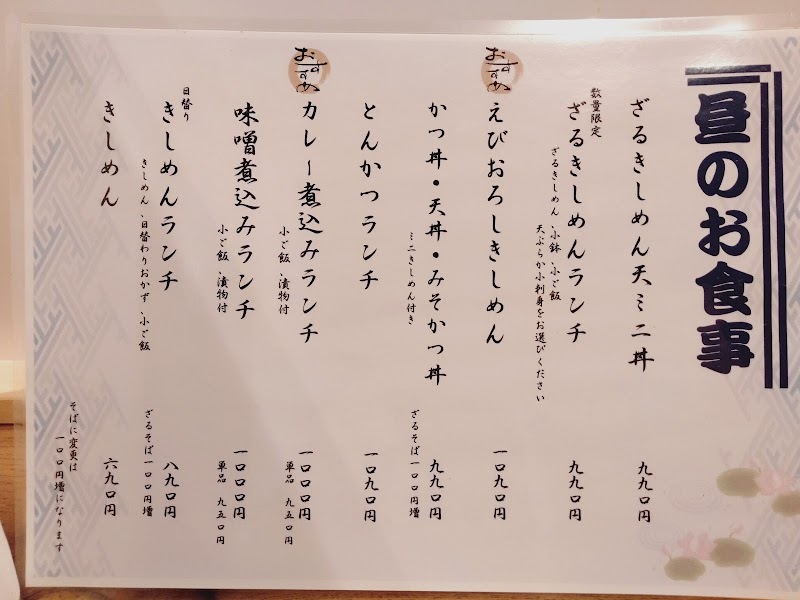 昼のお食事
ざるきしめん天ミニ丼
九九〇円
数量限定
ざるきしめんランチ
九九〇円
ざるきしめん、小鉢、小ご飯
天ぷらか小刺身をお選びください
おすすめ
えびおろしきしめん
一〇九〇円
かつ丼・天丼・みそかつ丼
九九〇円
ミニきしめん付き
ざるそば一〇〇円増
とんかつランチ
一〇九〇円
おすすめ
カレー煮込みランチ
一〇〇〇円
小ご飯、漬物付
単品 九五〇円
味噌煮込みランチ
一〇〇〇円
小ご飯、漬物付
単品 九五〇円
日替り
きしめんランチ
八九〇円
きしめん、日替わりおかず、小ご飯
ざるそば一〇〇円増
きしめん
六九〇円
そばに変更は
一〇〇円増になります